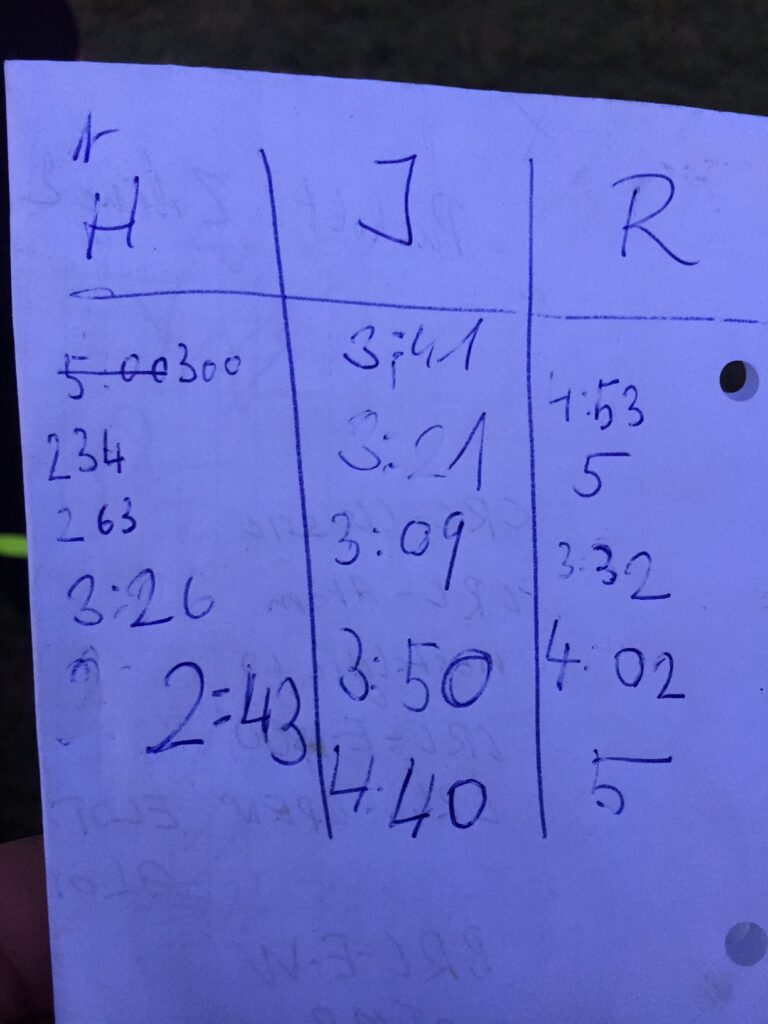 H J R
5:00 300 3:41 1:53
234 3:21 5
263 3:09 3:32
3:26 3:50 4:02
2:43 4:40 5